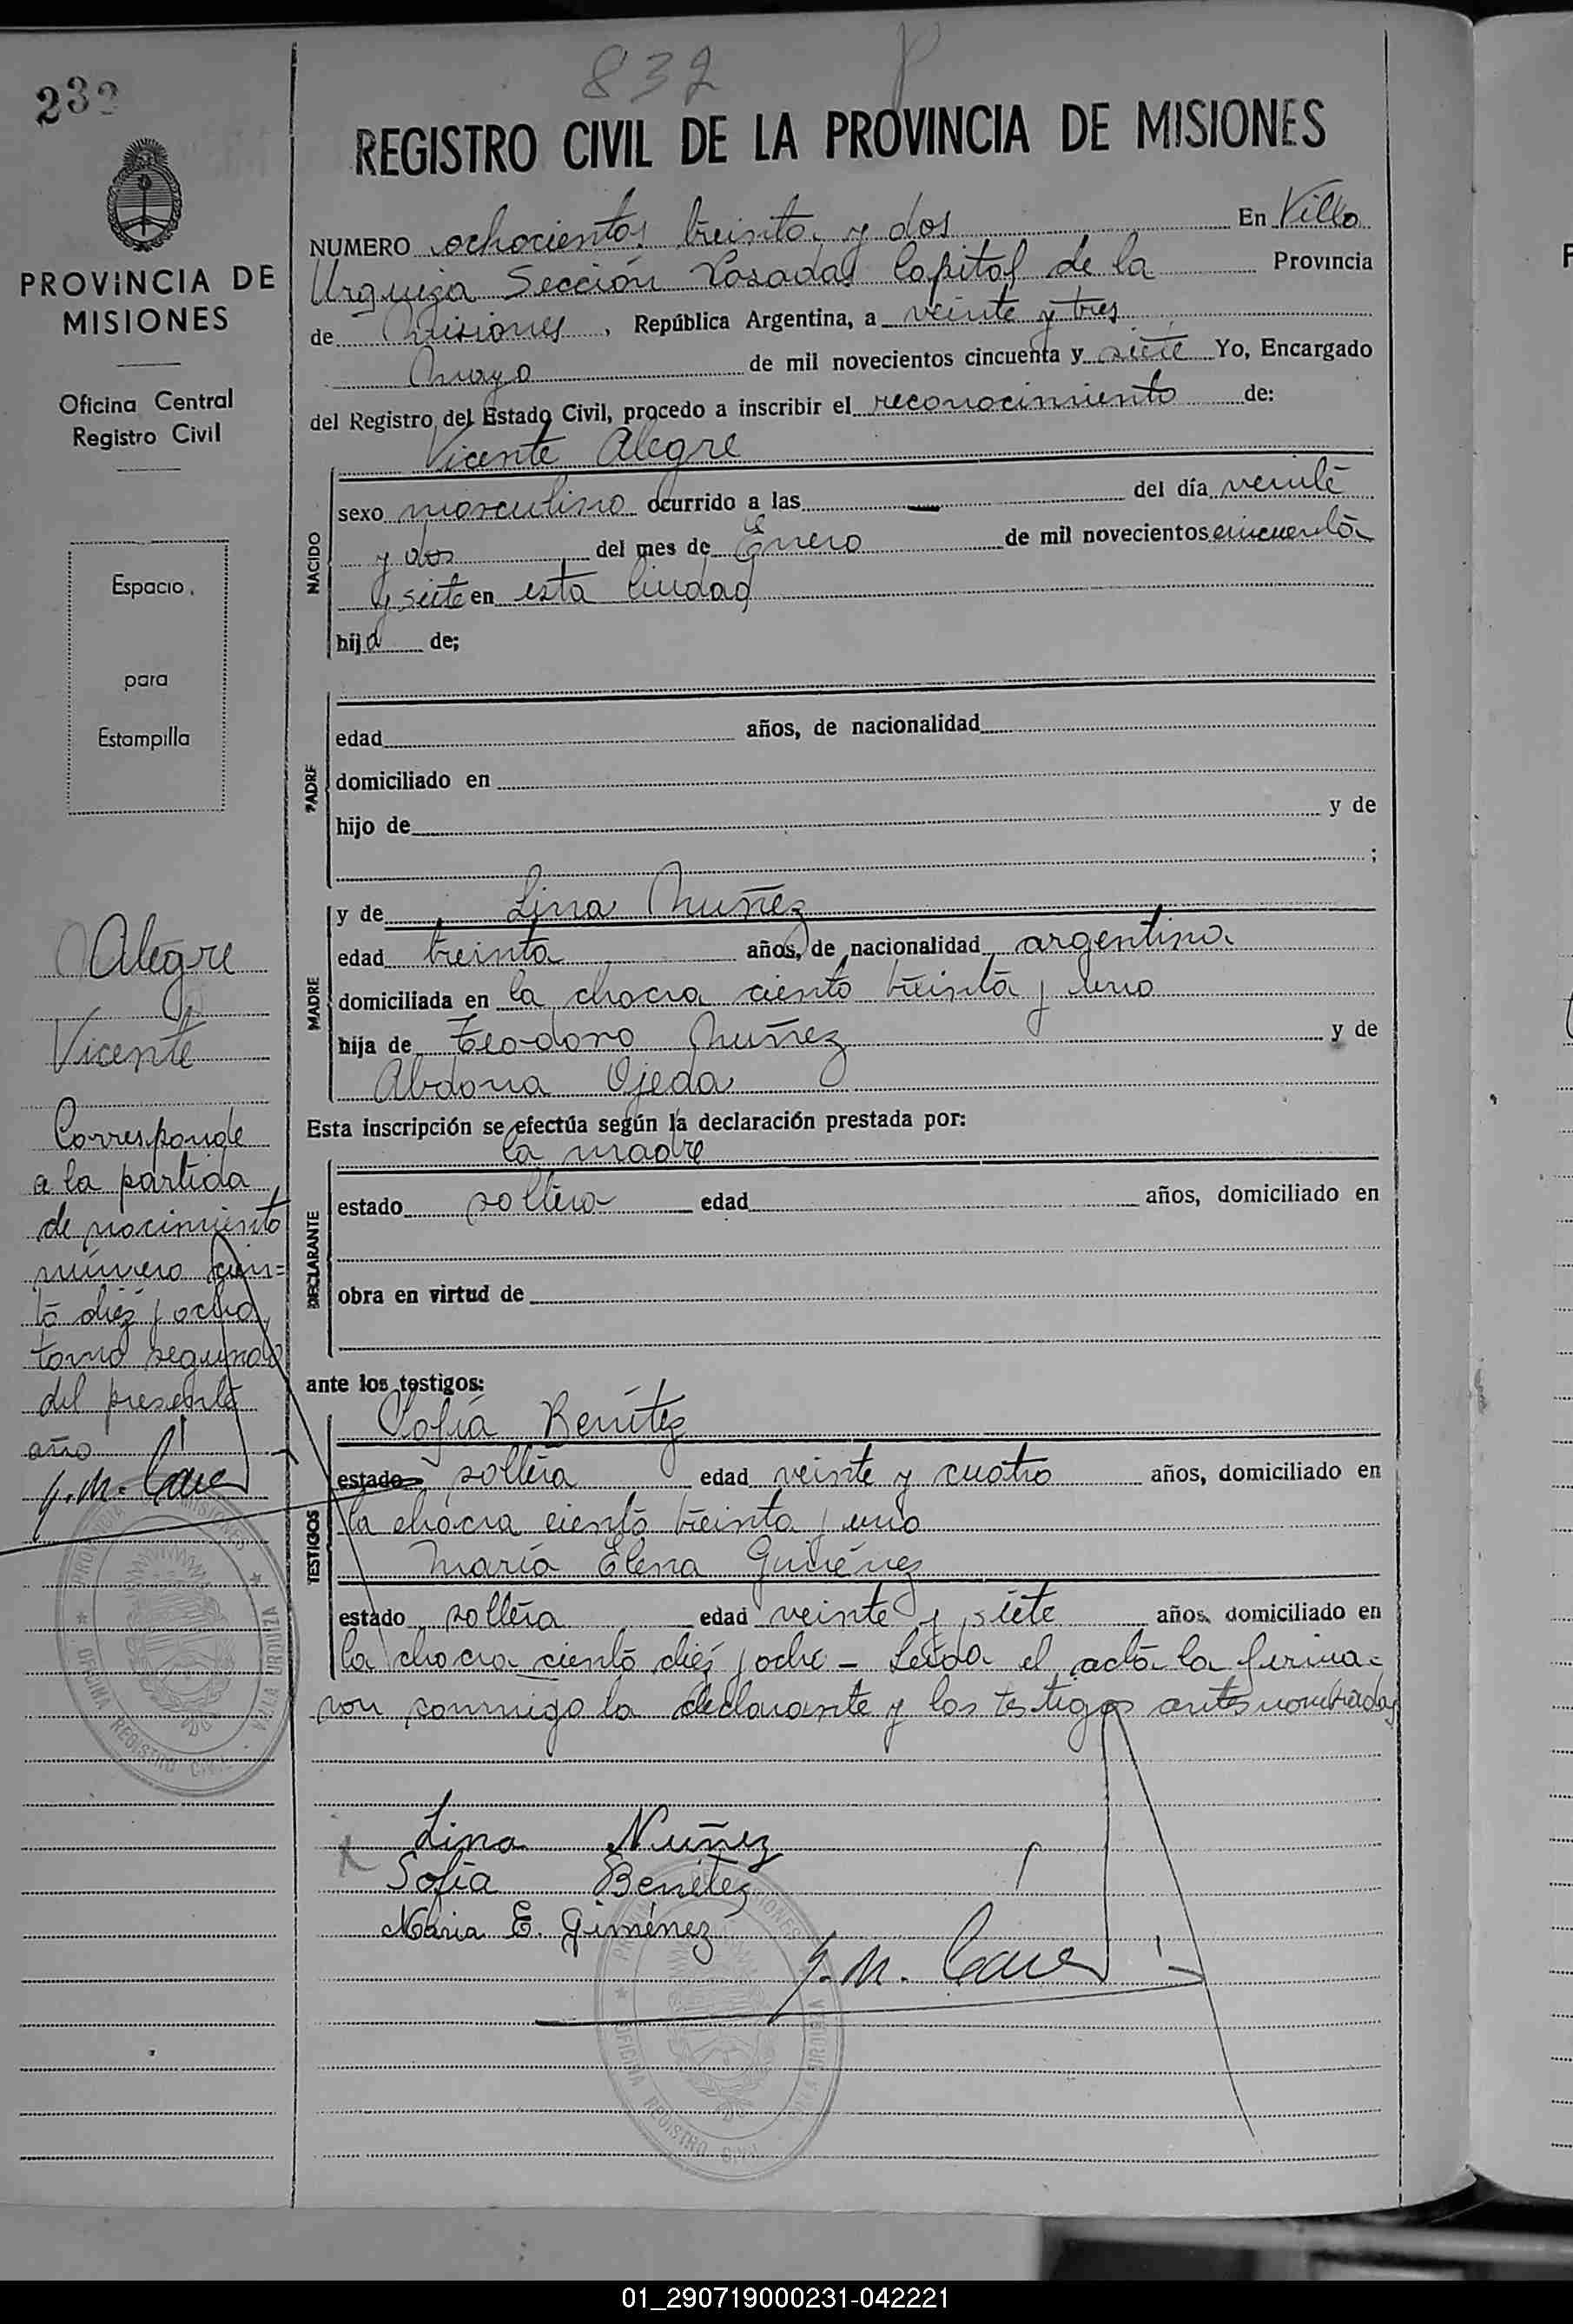 832
232
REGISTRO CIVIL DE LA PROVINCIA DE MISIONES
PROVINCIA DE
MISIONES
Oficina Central
Registro Civil
Espacio
para
Estampilla
NUMERO ochocientos treinta y dos En Villa
Urquiza Sección Posadas Capital de la Provincia
de Misiones, República Argentina, a veinte y tres
Mayo de mil novecientos cincuenta y siete Yo, Encargado
del Registro del Estado Civil, procedo a inscribir el reconocimiento de:
Vicente Alegre
NACIDO
sexo masculino ocurrido a las — del día veinte
y dos del mes de Enero de mil novecientos cincuenta
y siete en esta Ciudad
hijo de;
PADRE
edad años, de nacionalidad
domiciliado en
hijo de y de
;
MADRE
y de Lina Nuñez
edad treinta años, de nacionalidad argentina
domiciliada en la chacra ciento treinta y uno
hija de Teodoro Nuñez y de
Abdona Ojeda
Esta inscripción se efectúa según la declaración prestada por:
la madre
DECLARANTE
estado soltera edad años, domiciliado en
obra en virtud de
ante los testigos:
TESTIGOS
Sofía Benítez
estado soltera edad veinte y cuatro años, domiciliado en
la chacra ciento treinta y uno
María Elena Giménez
estado soltera edad veinte y siete años, domiciliado en
la chacra ciento diez y ocho - Leída el acta la firma=
ron conmigo la declarante y los testigos antes nombrados
Lina Nuñez
Sofía Benítez
María E. Giménez
Alegre
Vicente
Corresponde
a la partida
de nacimiento
número cien=
to diez y ocho
tomo segundo
del presente
año
PROVINCIA MISIONES
OFICINA REGISTRO CIVIL - VILLA URQUIZA
OFICINA REGISTRO CIVIL
01_290719000231-042221